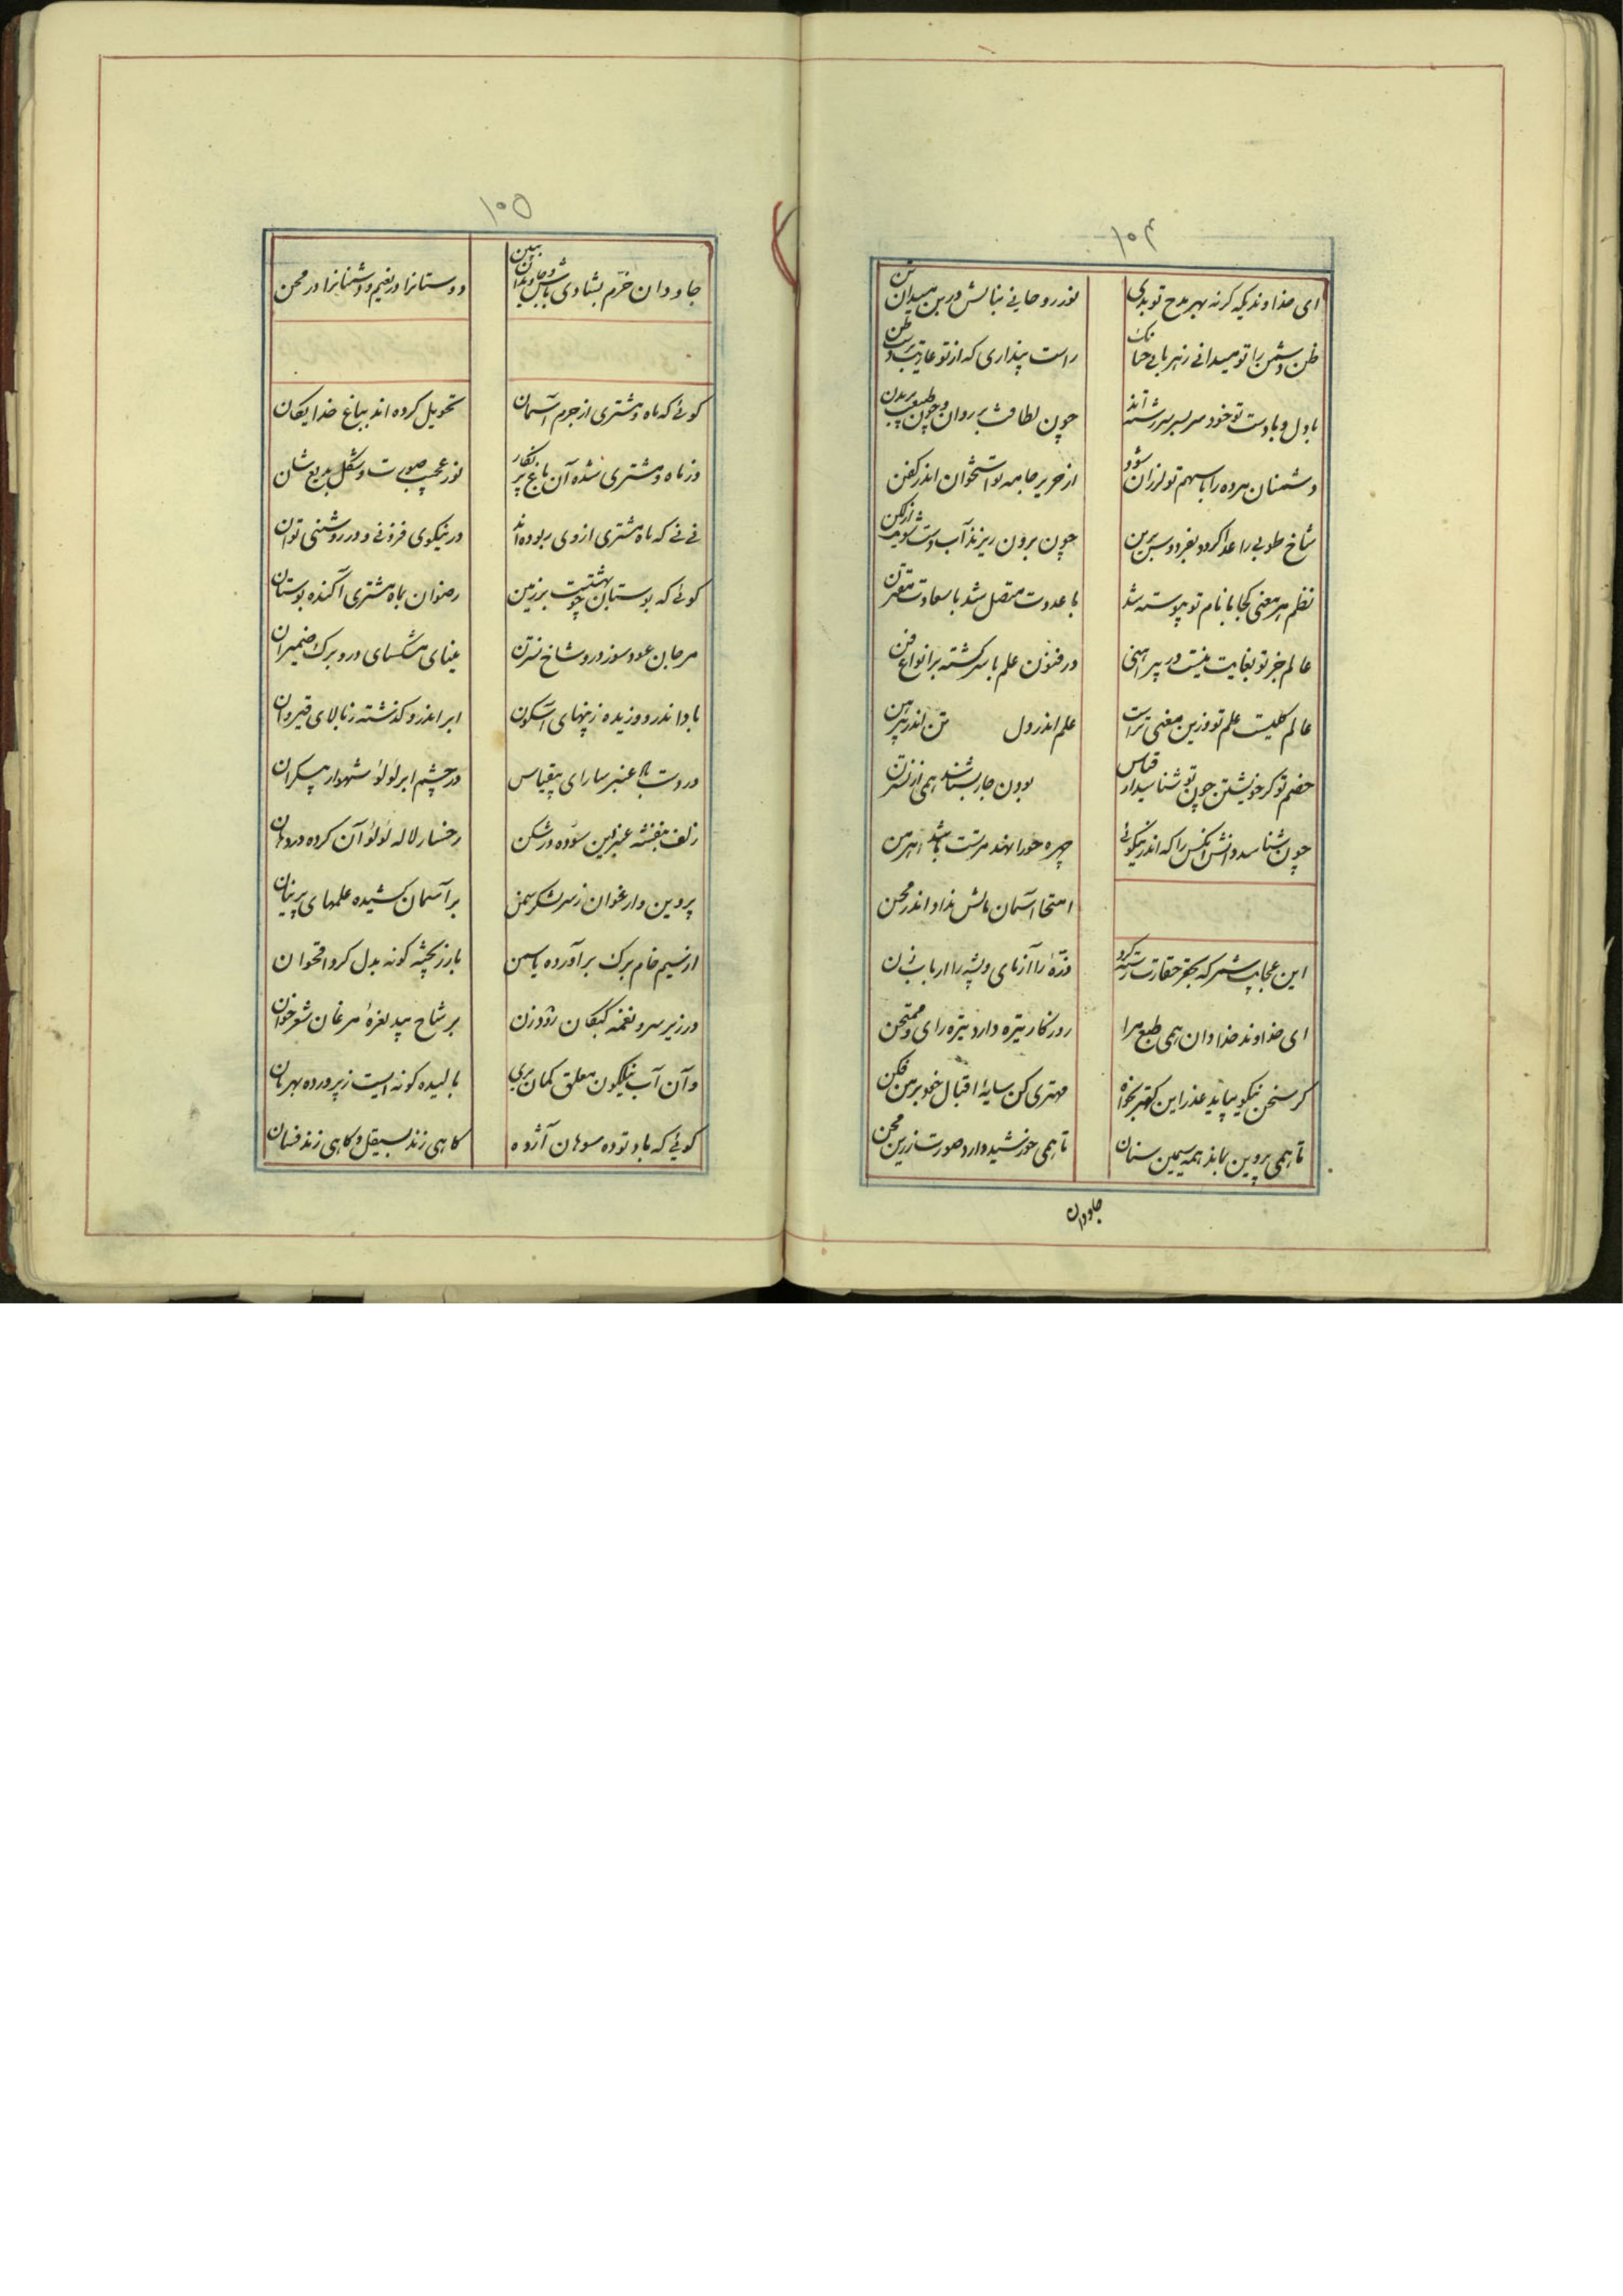 ۱۰۴
ای خداوندیکه گر نه بهر مدح تو بدی
نور روحانی نیالش در بن میدان تن
ظن دشمن را تو میدانی ز هر بابی
راست پنداری که از تو عاریت
با دل و با دست تو خود سر بسر سرشته‌اند
چون لطافت بر روان و چون طبیعت بر بدن
دشمنان مرده را با سهم تو لرزان شود
از حریر جامه تو استخوان اندر کفن
شاخ طوبی را غذا گردد بفردوس برین
چون برون ریزند آب دست شویت از لگن
نظم هر معنی کجا با نام تو پیوسته شد
با عدوت متصل شد با سعادت مقترن
عالم جز تو بغایت نیست در پیراهنی
در فنون علم با سر گشته بر انواع فن
عالم کلیست علم تو وزین معنی تراست
علم اندر دل تن اندر پیرهن
خصم تو گر خویشتن چون تو شناسد از قیاس
بودن جا بشناسند همی از نسترن
چون شناسد دانش آنکس را که اندر نیکوئی
چهره حورا نهند مرتبت باشد اهرمن
امتحان آسمان مالش نداد اندر محن
این عجایب تر که بحقر حقارت
ذره را آزمای و پشه را ارباب زن
ای خداوند خداوندان همی طبع مرا
روزگار تیره دارد تیره رای و ممتحن
گر سخن نیکو نیاید عذر این کهتر بخواه
مهتری کن سایه اقبال خود بر من فکن
تا همی پروین نماید همه سیمین سنان
تا همی خورشید دارد صورت زرین مجن
جاودان
۱۰۵
جاودان خرم بشادی باش و جاویدان ببین
دوستانرا در نعیم و دشمنانرا در محن
گوئی که ماه و مشتری از جرم آسمان
تحویل کرده‌اند بباغ خدایگان
وز ماه و مشتری شده آن باغ پر نگار
نور عجب صورت و شکل بدیع شان
نی نی که ماه مشتری از وی ربوده‌اند
در نیکوی فزونی و در روشنی توان
گوئی که بوستان بهشتیست بر زمین
رضوان بماه مشتری آکنده بوستان
مرجان عود سوز در و شاخ نسترن
مینای مشکسای در و برک ضمیران
باد اندرو وزیده ز پنهای آسکون
ابر اندرو گذشته ز بالای قیروان
در دست باد عنبر سارای بیقیاس
در چشم ابر لؤلؤ شهوار بیکران
زلف بنفشه عنبر این سوده در شکن
رخسار لاله لؤلؤ آن کرده در دهان
پروین و ارغوان ز سر لشکر سمن
بر آسمان کشیده علمهای پرنیان
از سیم خام برک بر آورده یاسمین
با زر پخته گونه بدل کرد اقحوان
در زیر سرو نغمه کبکان رودزن
بر شاخ بید نعره مرغان شعر خوان
وآن آب نیلگون معلق گمان بری
بالیده گونه ایست ز پرورده بهرمان
گوئی که باد توده سوهان آژده
گاهی زند بصیقل و گاهی زند فسان